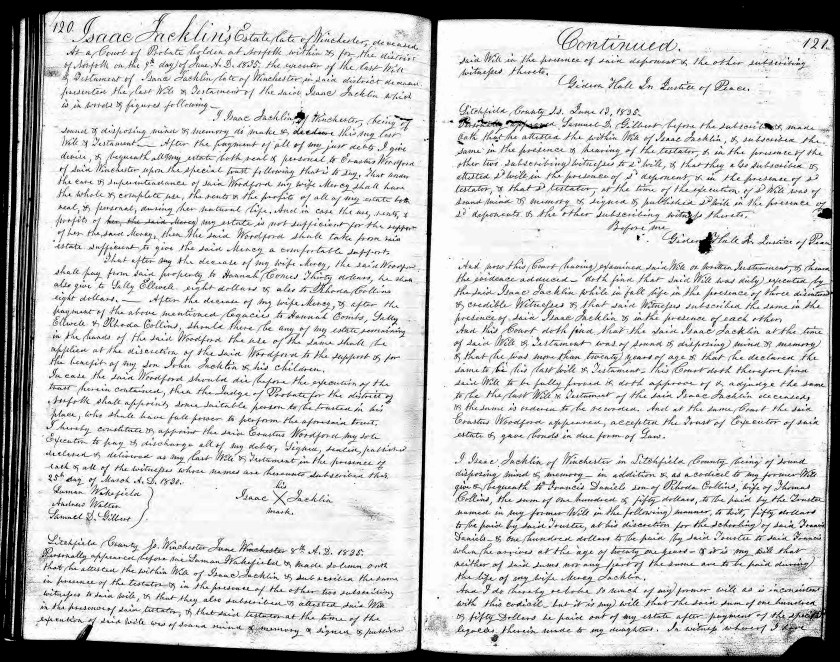 120. Isaac Jacklin's Estate, late of Winchester, deceased
At a Court of Probate holden at Norfolk within & for the district
of Norfolk on the 9th day of June A.D. 1835. the executor of the last Will
& Testament of Isaac Jacklin late of Winchester in said district deceased
presented the last Will & Testament of the said Isaac Jacklin which
is in words & figures following—
I Isaac Jacklin of Winchester, being of
sound & disposing mind & memory do make & declare this my last
Will & Testament— After the payment of all of my just debts, I give
devise, & bequeath all my estate both real & personal to Erastus Woodford
of said Winchester upon the special trust following that is to say, That under
the care & superintendance of said Woodford my wife Mercy shall have
the whole & complete use, the rents & the profits of all of my estate both
real, & personal, during her natural life, And in case the use, rents, &
profits of her, the said Mercy my estate is not sufficient for the support
of her the said Mercy, then the said Woodford shall take from said
estate sufficient to give the said Mercy a comfortable support.
That after my the decease of my wife Mercy, the said Woodford
shall pay from said property to Hannah Combs Thirty dollars, he shall
also give to Sally Ellwell eight dollars & also to Rhoda Collins
eight dollars.— After the decease of my wife Mercy, & after the
payment of the above mentioned legacies to Hannah Combs, Sally
Ellwell & Rhoda Collins, should there be any of my estate remaining
in the hands of the said Woodford the use of the same shall be
applied at the discretion of the said Woodford to the support & for
the benefit of my son John Jacklin & his children.
In case the said Woodford should die before the execution of the
trust herein contained, then the Judge of Probate for the district of
Norfolk shall appoint some suitable person to be trusted in his
place, who shall have full power to perform the aforesaid trust,
I hereby constitute & appoint the said Erastus Woodford my sole
Executor to pay & discharge all of my debts, Signed, sealed, published
declared & delivered as my last Will & Testament in the presence of
each & all of the witnesses whose names are hereunto subscribed this
25th day of March A.D. 1830.
Luman Wakefield
Andrews Walter
Samuel D. Gilbert
his
Isaac X Jacklin
mark.
Litchfield County Ss. Winchester June Winchester 8th A.D. 1835.
Personally appeared before me Luman Wakefield & made solemn oath
that he attested the within Will of Isaac Jacklin & subscribed the same
in presence of the testator & in the presence of the other two subscribing
witnesses to said will, & that they also subscribed & attested said Will
in the presence of said testator, & that said testator at the time of the
execution of said will was of sound mind & memory & signed & published
Continued. 121.
said Will in the presence of said deponent & the other subscribing
witnesses thereto.
Gideon Hall Jn Justice of Peace.
Litchfield County Ss. June 13, 1835.
Samuel D. Gilbert before the subscriber & made
oath that he attested the within Will of Isaac Jacklin, & subscribed the
same in the presence & hearing of the testator & in the presence of the
other two subscribing witnesses to sd will, & that they also subscribed &
attested sd will in the presence of sd deponent, & in the presence of sd
testator, & that sd testator, at the time of the execution of sd Will was of
sound mind & memory & signed & published sd Will in the presence of
sd deponents & the other subscribing witness thereto.
Before me
Gideon Hall Jr. Justice of Peace
And now this Court having examined said Will or written Instrument, & heard
the evidence adduced— doth find that said Will was duly executed by
the said Isaac Jacklin while in full life in the presence of three disinterested
& credible Witnesses & that said Witnesses subscribed the same in the
presence of said Isaac Jacklin & in the presence of each other;
And this Court doth find that the said Isaac Jacklin at the time
of said Will & Testament was of sound & disposing mind & memory
& that he was more than twenty years of age & that he declared the
same to be his last will & Testament. this Court doth therefore find
said Will to be fully proved & doth approve of & adjudge the same
to be the last Will & Testament of the said Isaac Jacklin deceased,
& the same is ordered to be recorded. And at the same Court the said
Erastus Woodford appeared, accepted the Trust of Executor of said
estate & gave bonds in due form of Law.
I Isaac Jacklin of Winchester in Litchfield County being of sound
disposing mind & memory— in addition & as a codicil to my former Will
give & bequeath to Francis Daniels son of Rhoda Collins, wife of Thomas
Collins, the sum of one hundred & fifty dollars, to be paid by the Trustee
named in my former Will in the following manner, to wit, fifty dollars
to be paid by said Trustee, at his discretion for the schooling of said Francis
Daniels— & one hundred dollars to be paid by said Trustee to said Francis
when he arrives at the age of twenty one years— & it is my will that
neither of said sums nor any part of the same are to be paid during
the life of my wife Mercy Jacklin.
And I do hereby revoke so much of my former will as is inconsistent
with this codicil, but it is my will that the said sum of one hundred
& fifty Dollars be paid out of my estate after payment of the specific
legacies therein made to my daughters. In witness whereof I have